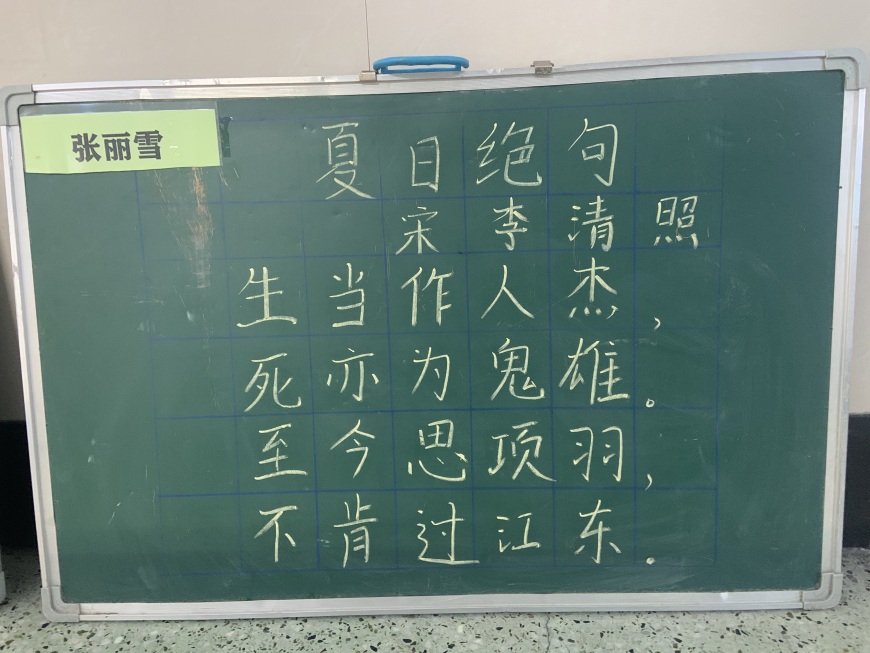 张丽雪
夏日绝句
宋 李清照
生当作人杰，
死亦为鬼雄。
至今思项羽，
不肯过江东。